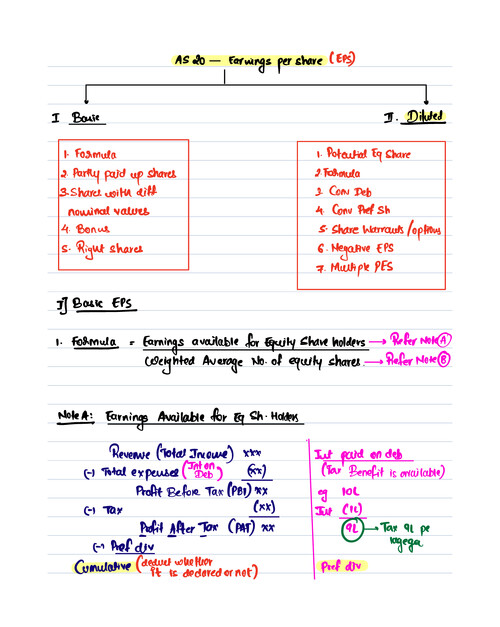 AS 20 — Earnings per share (EPS)
I Basic
II. Diluted
1. Formula
2. Partly paid up shares
3. Shares with diff
nominal values
4. Bonus
5. Right shares
1. Potential Eq Share
2 Formula
3 Conv Deb
4. Conv Pref Sh
5. Share Warrants/options
6. Negative EPS
7. Multiple PES
I] Basic EPS
1. Formula = Earnings available for Equity Share holders → Refer Note (A)
Weighted Average No. of equity shares → Refer Note (B)
Note A: Earnings Available for Eq Sh. Holders
Revenue (Total Income) xxx
(-) Total expenses (Int on Deb) (xx)
Profit Before Tax (PBT) xx
(-) Tax (xx)
Profit After Tax (PAT) xx
(-) Pref div
Cumulative (deduct whether
it is declared or not)
Int paid on deb
(Tax Benefit is available)
eg 10L
Int (1L)
9L → Tax 9L pe
lagega
Pref div